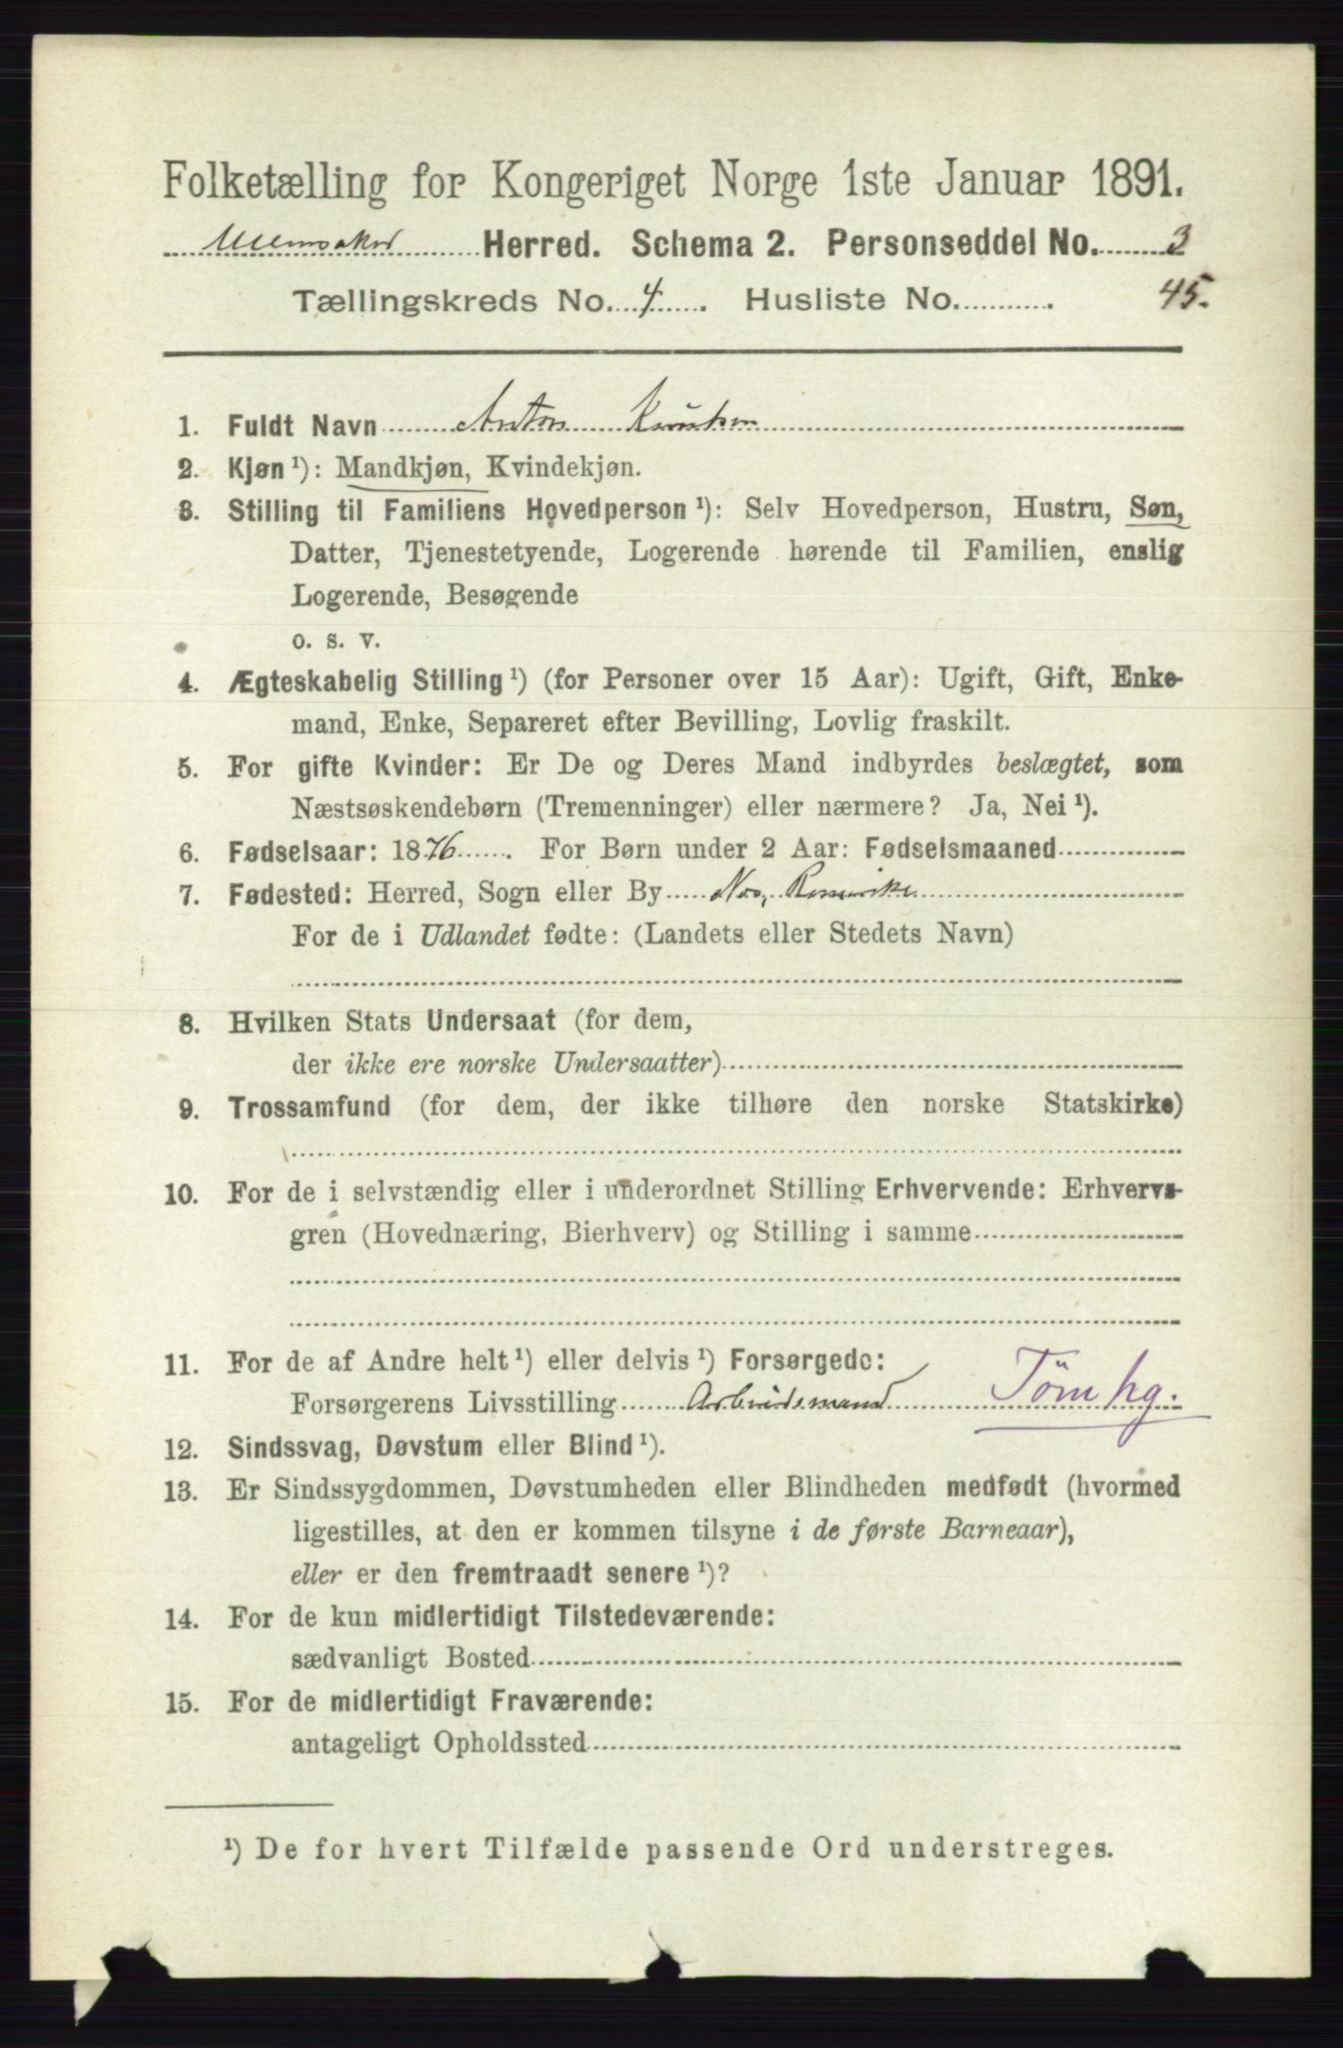 Folketælling for Kongeriget Norge 1ste Januar 1891.
Ullensaker Herred. Schema 2. Personseddel No. 3
Tællingskreds No. 4. Husliste No. 45.
1. Fuldt Navn Anton Knutsen
2. Kjøn ¹): Mandkjøn, Kvindekjøn.
3. Stilling til Familiens Hovedperson ¹): Selv Hovedperson, Hustru, Søn,
Datter, Tjenestetyende, Logerende hørende til Familien, enslig
Logerende, Besøgende
o. s. v.
4. Ægteskabelig Stilling ¹) (for Personer over 15 Aar): Ugift, Gift, Enke-
mand, Enke, Separeret efter Bevilling, Lovlig fraskilt.
5. For gifte Kvinder: Er De og Deres Mand indbyrdes beslægtet, som
Næstsøskendebørn (Tremenninger) eller nærmere? Ja, Nei ¹).
6. Fødselsaar: 1876. For Børn under 2 Aar: Fødselsmaaned
7. Fødested: Herred, Sogn eller By Nes, Romerike
For de i Udlandet fødte: (Landets eller Stedets Navn)
8. Hvilken Stats Undersaat (for dem,
der ikke ere norske Undersaatter)
9. Trossamfund (for dem, der ikke tilhøre den norske Statskirke)
10. For de i selvstændig eller i underordnet Stilling Erhvervende: Erhvervs-
gren (Hovednæring, Bierhverv) og Stilling i samme
11. For de af Andre helt ¹) eller delvis ¹) Forsørgede:
Forsørgerens Livsstilling Arbeidsmand Tömhg.
12. Sindssvag, Døvstum eller Blind ¹).
13. Er Sindssygdommen, Døvstumheden eller Blindheden medfødt (hvormed
ligestilles, at den er kommen tilsyne i de første Barneaar),
eller er den fremtraadt senere ¹)?
14. For de kun midlertidigt Tilstedeværende:
sædvanligt Bosted
15. For de midlertidigt Fraværende:
antageligt Opholdssted
¹) De for hvert Tilfælde passende Ord understreges.